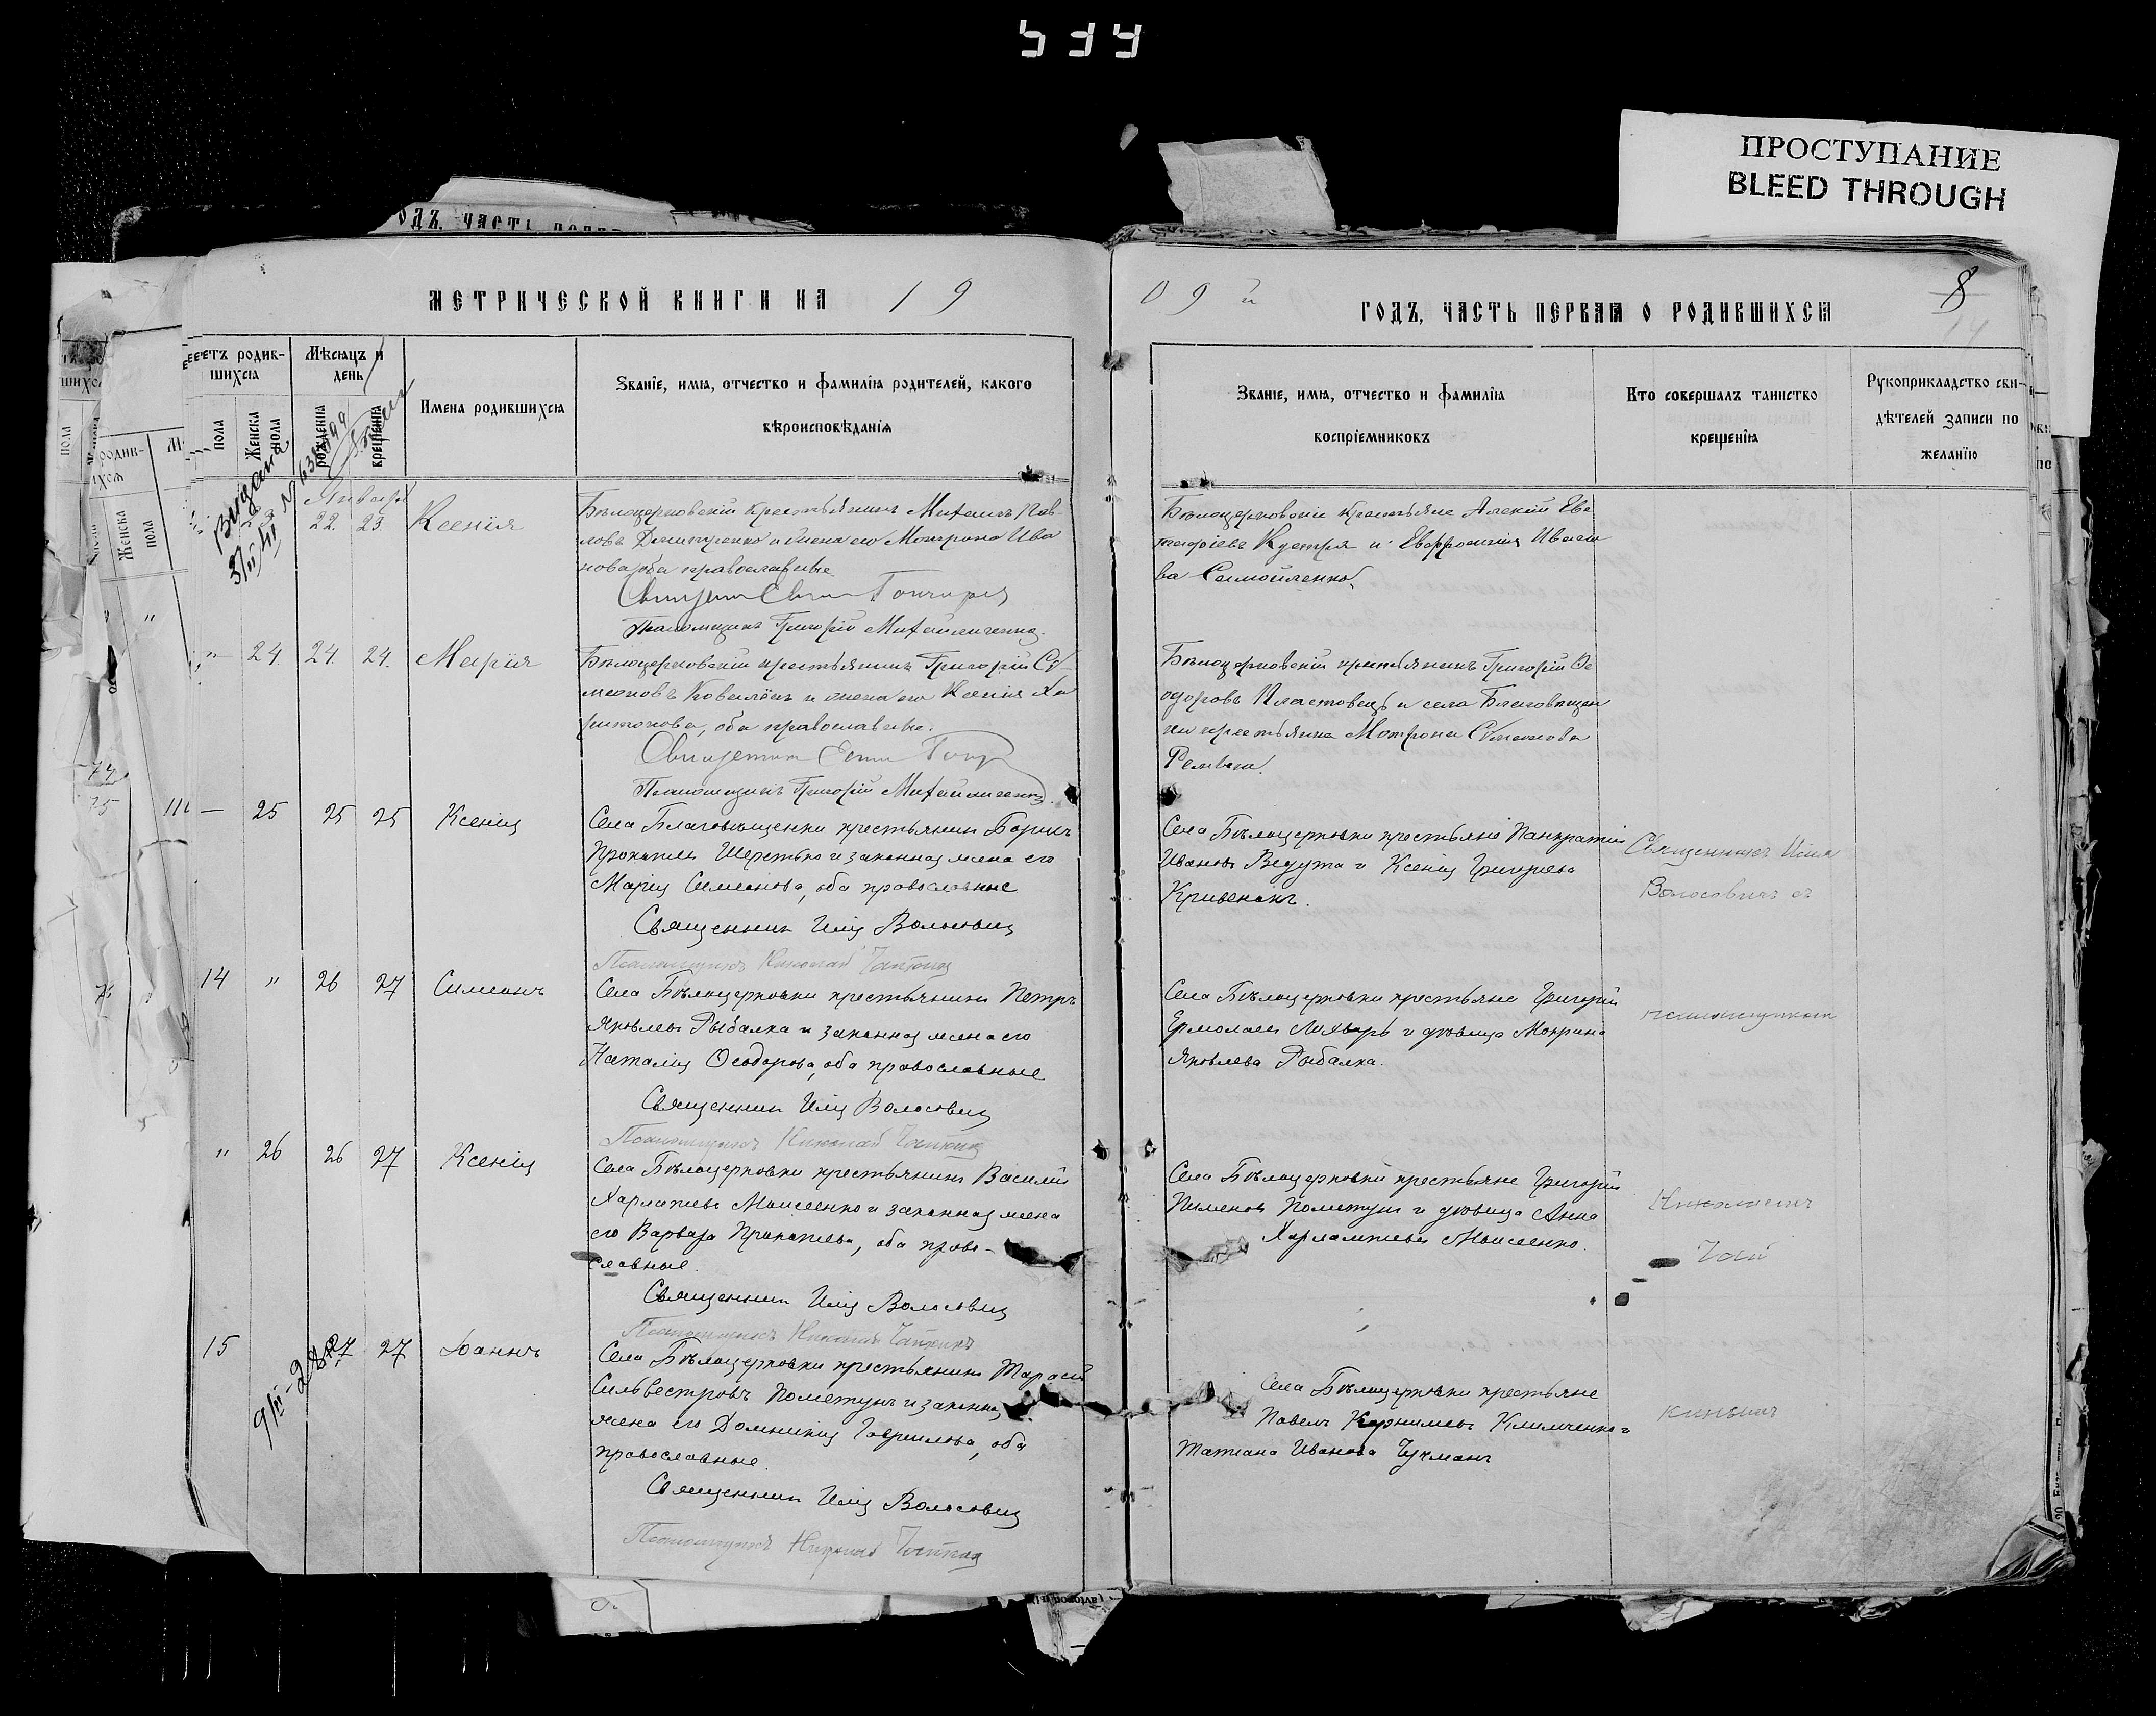 ПРОСТУПАНИЕ
BLEED THROUGH
МЕТРИЧЕСКОЙ КНИГИ НА 19
09 й ГОДЪ, ЧАСТЬ ПЕРВАЯ О РОДИВШИХСЯ
8
Мѣсяцъ и день
Женска пола
рожденія
крещенія
Имена родившихся
Званіе, имя, отчество и фамилія родителей, какого
вѣроисповѣданія
Званіе, имя, отчество и фамилія
воспріемниковъ
Кто совершалъ таинство
крещенія
Рукоприкладство сви-
дѣтелей записи по
желанію
Января
22. 23. Ксенія
Бѣлоцерковскій крестьянинъ Михаилъ Пав-
ловъ Дмитренко и жена его Мотрона Ива
нова, оба православные.
Псаломщикъ Григорій Михайличенко.
Бѣлоцерковскіе крестьяне Алексій Ев
Кустря и Евфросинія Ивано
ва Самойленко.
24. 24. 24. Марія
Бѣлоцерковскій крестьянинъ Григорій Си-
меоновъ Ковалёкъ и жена его Ксенія Ха
ритонова, оба православные.
Псаломщикъ Григорій Михайличенко.
Бѣлоцерковскій крестьянинъ Григорій Ѳе
одоровъ Пластовецъ и села Благовѣщен
ки крестьянка Мотрона Симеонова
— 25 25 25 Ксенія
Села Благовѣщенки крестьянинъ Борисъ
Прокопіевъ Шерстько и законная жена его
Марія Симеонова, оба православные
Священникъ Илія Волосовичъ
Псаломщикъ Николай
Села Бѣлоцерковки крестьяне Панкратій
Ивановъ Ведута и Ксенія Григорьева
Кривенокъ.
Священникъ Илія
Волосовичъ съ
14 " 26 27 Симеонъ
Села Бѣлоцерковки крестьянинъ Петръ
Яковлевъ Рыбалка и законная жена его
Наталія Ѳеодорова, оба православные
Священникъ Илія Волосовичъ
Псаломщикъ Николай
Села Бѣлоцерковки крестьяне Григорій
Ермолаевъ Лихварь и дѣвица Мокрина
Яковлева Рыбалка.
псаломщикомъ
" 26 26 27 Ксенія
Села Бѣлоцерковки крестьянинъ Василій
Харлампіевъ Моисеенко и законная жена
его Варвара Прокопіева, оба право-
славные.
Священникъ Илія Волосовичъ
Псаломщикъ Николай
Села Бѣлоцерковки крестьяне Григорій
Пименовъ Пометунъ и дѣвица Анна
Харлампіева Моисеенко.
Николаемъ
15 27 27 Іоаннъ
Села Бѣлоцерковки крестьянинъ Тарасій
Сильвестровъ Пометунъ и законная
жена его Домникія Гавриилова, оба
православные.
Священникъ Илія Волосовичъ
Псаломщикъ Николай
Села Бѣлоцерковки крестьяне
Павелъ Корниліевъ Климченко и
Татіана Иванова Чучманъ